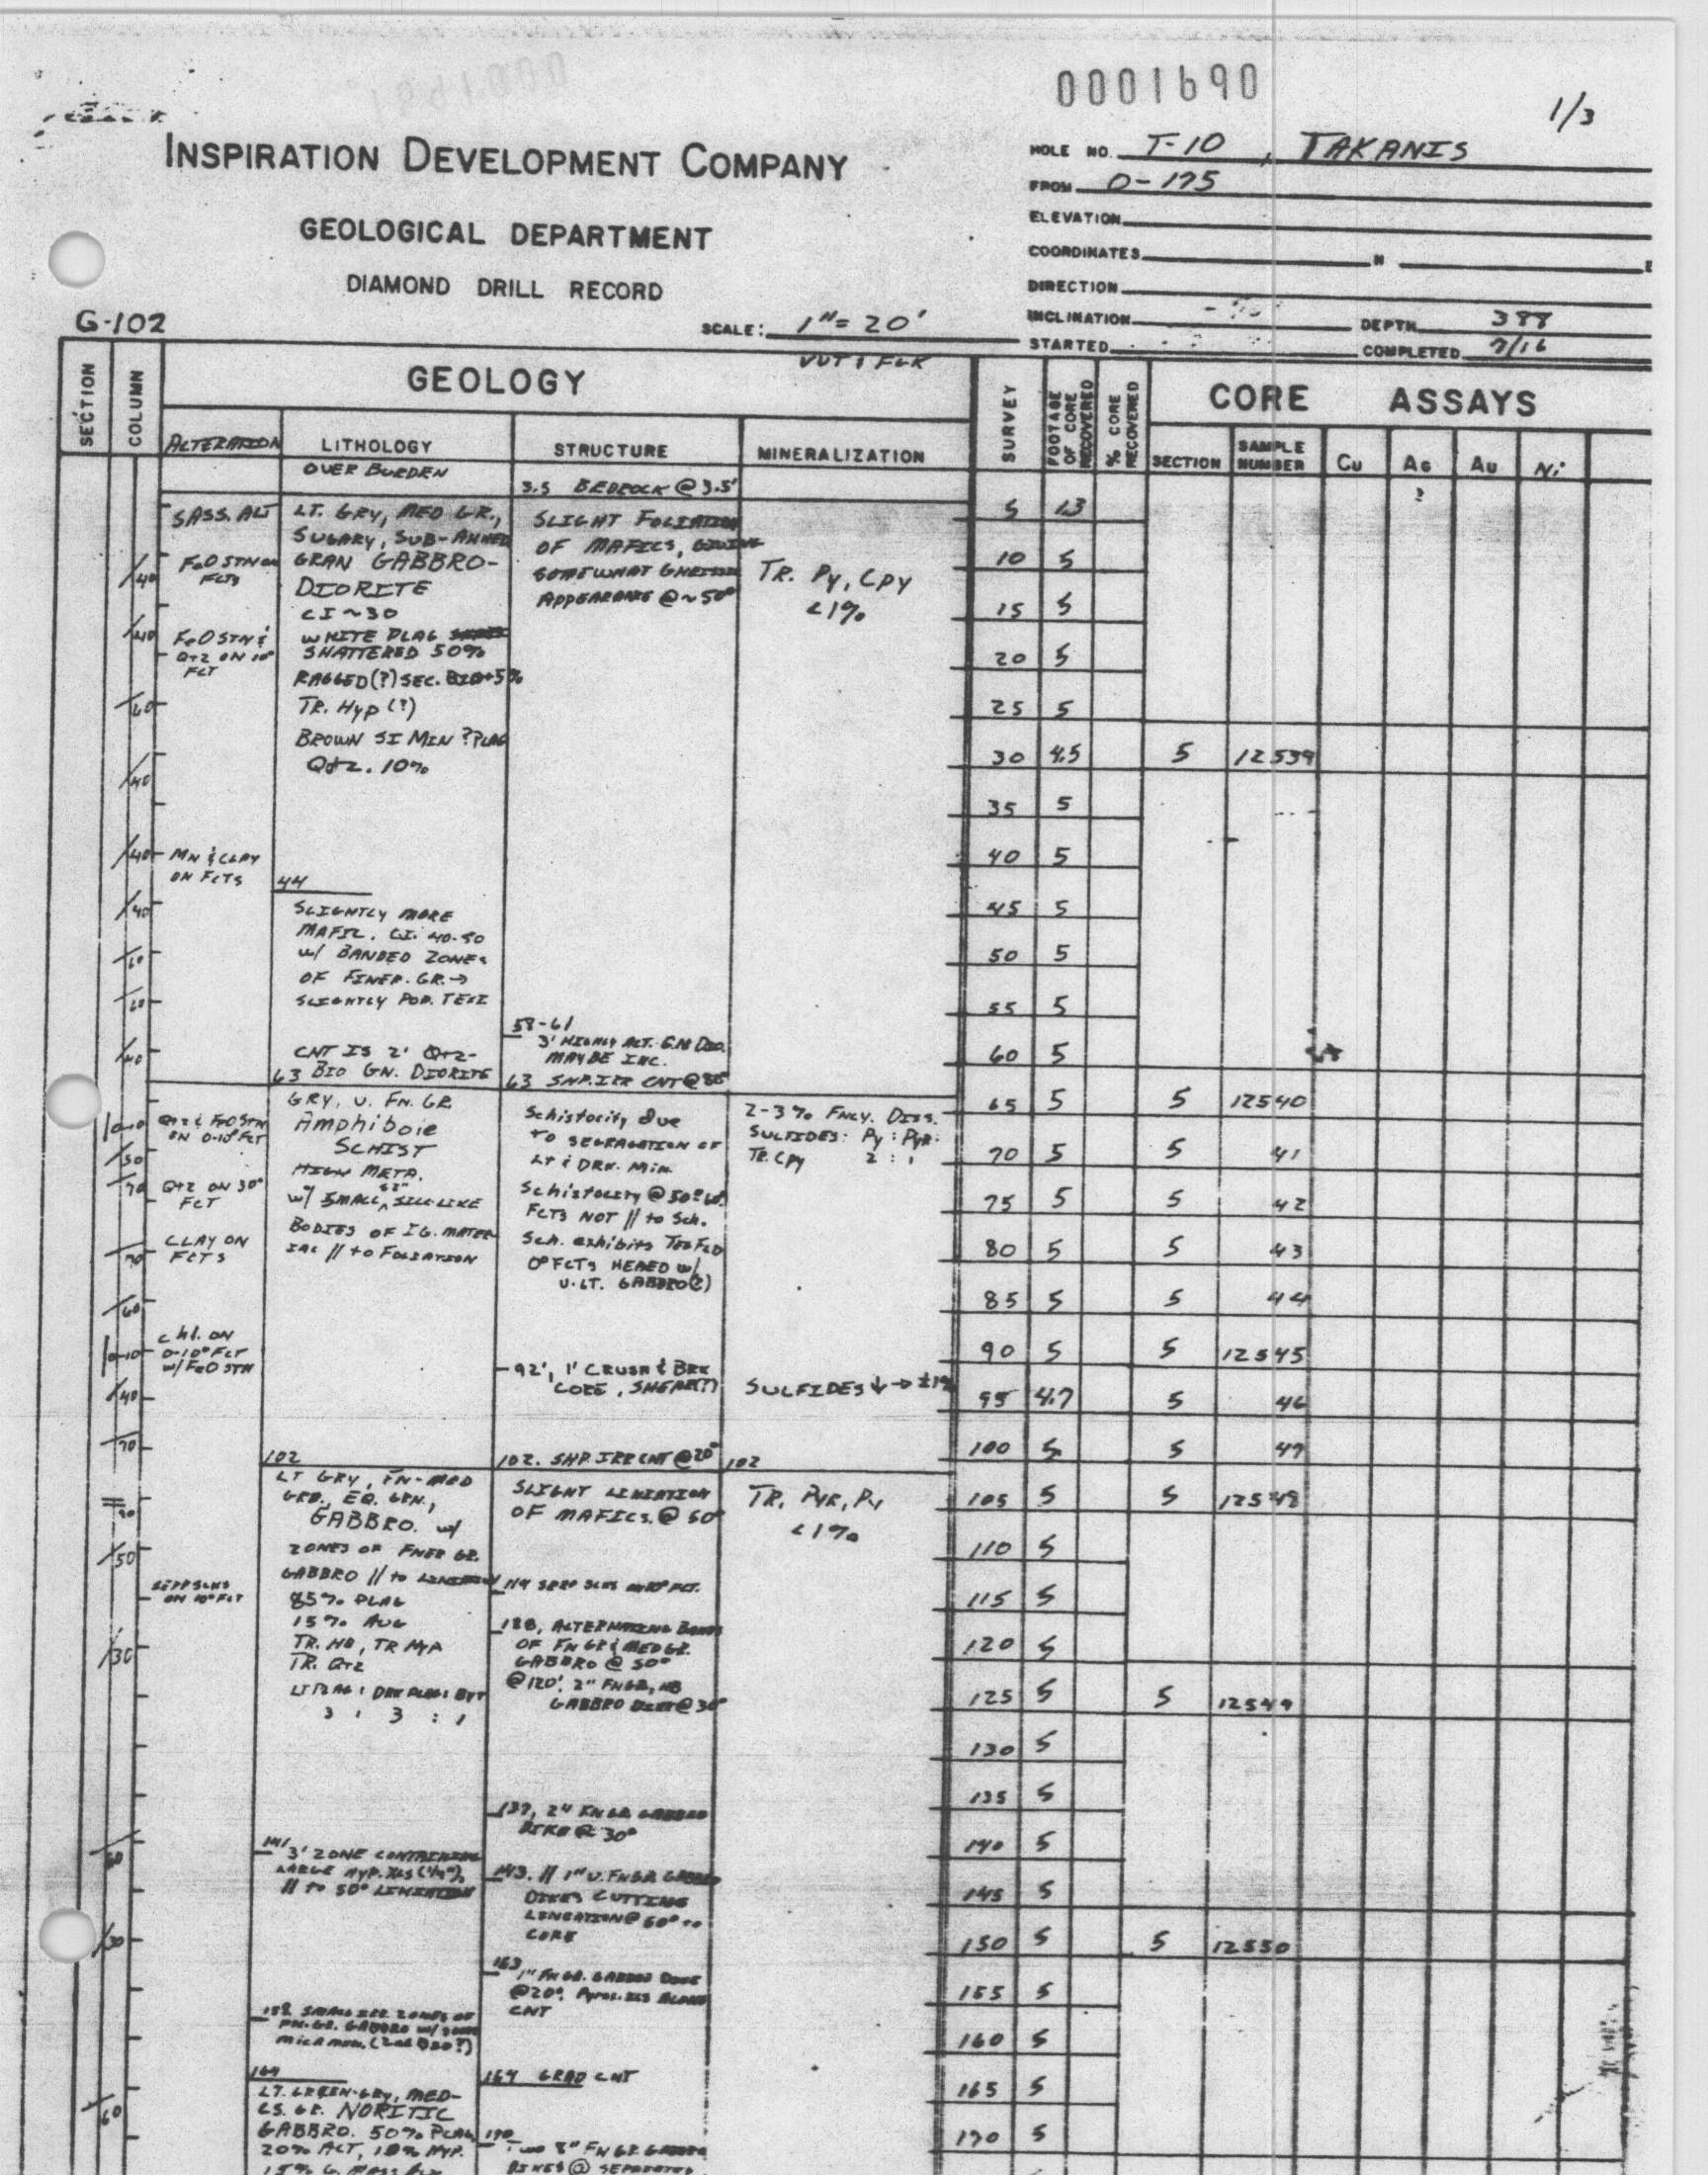 0001690
1/3
INSPIRATION DEVELOPMENT COMPANY
GEOLOGICAL DEPARTMENT
DIAMOND DRILL RECORD
HOLE NO. T-10, TAKANIS
FROM 0-175
ELEVATION
COORDINATES N E
DIRECTION
INCLINATION DEPTH 388
STARTED COMPLETED 7/16
G-102
SCALE: 1"=20'
SECTION
COLUMN
GEOLOGY
SURVEY
FOOTAGE OF CORE RECOVERED
% CORE RECOVERED
CORE ASSAYS
ALTERATION LITHOLOGY STRUCTURE MINERALIZATION
SECTION SAMPLE NUMBER Cu Ag Au Ni
OVER BURDEN
3.5 BEDROCK @ 3.5'
SASS. ALT
FeO STN ON
FCTS
FeO STN &
QTZ ON 10°
FCT
MN & CLAY
ON FCTS
LT. GRY, MED GR.,
SUGARY, SUB-
GRAN GABBRO-
DIORITE
CI ~30
WHITE PLAG
SHATTERED 50%
RAGGED(?) SEC. 5%
TR. HYP (?)
BROWN SI MIN ? PLAG
QTZ. 10%
SLIGHT FOLIATION
OF MAFICS, GIVING
SOMEWHAT
APPEARANCE @ ~50°
TR. PY, CPY
<1%
44
SLIGHTLY MORE
MAFIC. CI. 40-50
W/ BANDED ZONES
OF FINER. GR.→
SLIGHTLY POR. TEXT
CNT IS 2' QTZ-
63 BIO GN. DIORITE
58-61
3' HIGHLY ALT. GN DIO.
MAYBE INC.
63 SHP. IRR CNT @ 80°
QTZ & FeO STN
ON 0-10° FCT
QTZ ON 30°
FCT
CLAY ON
FCTS
Chl. ON
0-10° FCT
W/ FeO STN
GRY, V. FN. GR
Amphibole
SCHIST
HIGH META.
W/ SMALL, SILL LIKE
BODIES OF IG. MATER-
IAL // to FOLIATION
Schistocity due
to SEGRAGATION OF
LT & DRK. Min.
Schistocity @ 50°
FCTS NOT // to Sch.
Sch. exhibits
0° FCTS HEALED w/
V. LT. GABBRO(?)
92', 1' CRUSH & BRK
CORE, SHEAR(?)
2-3% FNLY. DISS.
SULFIDES: Py : Pyr:
TR. CPY 2 : 1
SULFIDES ↓ → ±1%
102
102. SHP. IRR CNT @ 20°
102
LT GRY, FN-MED
GRD, EQ. GRN.,
GABBRO. W/
ZONES OF FNER GR.
GABBRO // to LINEATION
85% PLAG
15% AUG
TR. HB, TR HYP
TR. QTZ
SLIGHT LINIATION
OF MAFICS. @ 50°
ON 10° FCT
OF FN GR & MED GR.
GABBRO @ 50°
@ 120', 2" FN GR, HB
GABBRO @ 30°
TR. PYR, PY
<1%
137, 2" FN GR GABBRO
DIKE @ 30°
141
3' ZONE CONTAINING
LARGE HYP. XLS (1/4"),
// to 50° LINIATION
143. // 1" V. FN GR GABBRO
DIKES CUTTING
LINEATION @ 60° to
CORE
1" FN GR. GABBRO DIKE
@ 20°.
CNT
158 SMALL IRR ZONES OF
FN-GR. GABBRO W/ SOME
164
164 GRAD CNT
LT. GREEN-GRY, MED-
CS. GR. NORITIC
GABBRO. 50% PLAG
20% ACT, 10% HYP.
190
TWO 8" FN GR GABBRO
DIKES @ SEPARATED
5 1.3
10 5
15 5
20 5
25 5
30 4.5 5 12539
35 5
40 5
45 5
50 5
55 5
60 5
65 5 5 12540
70 5 5 41
75 5 5 42
80 5 5 43
85 5 5 44
90 5 5 12545
95 4.7 5 46
100 5 5 47
105 5 5 12548
110 5
115 5
120 5
125 5 5 12549
130 5
135 5
140 5
145 5
150 5 5 12550
155 5
160 5
165 5
170 5